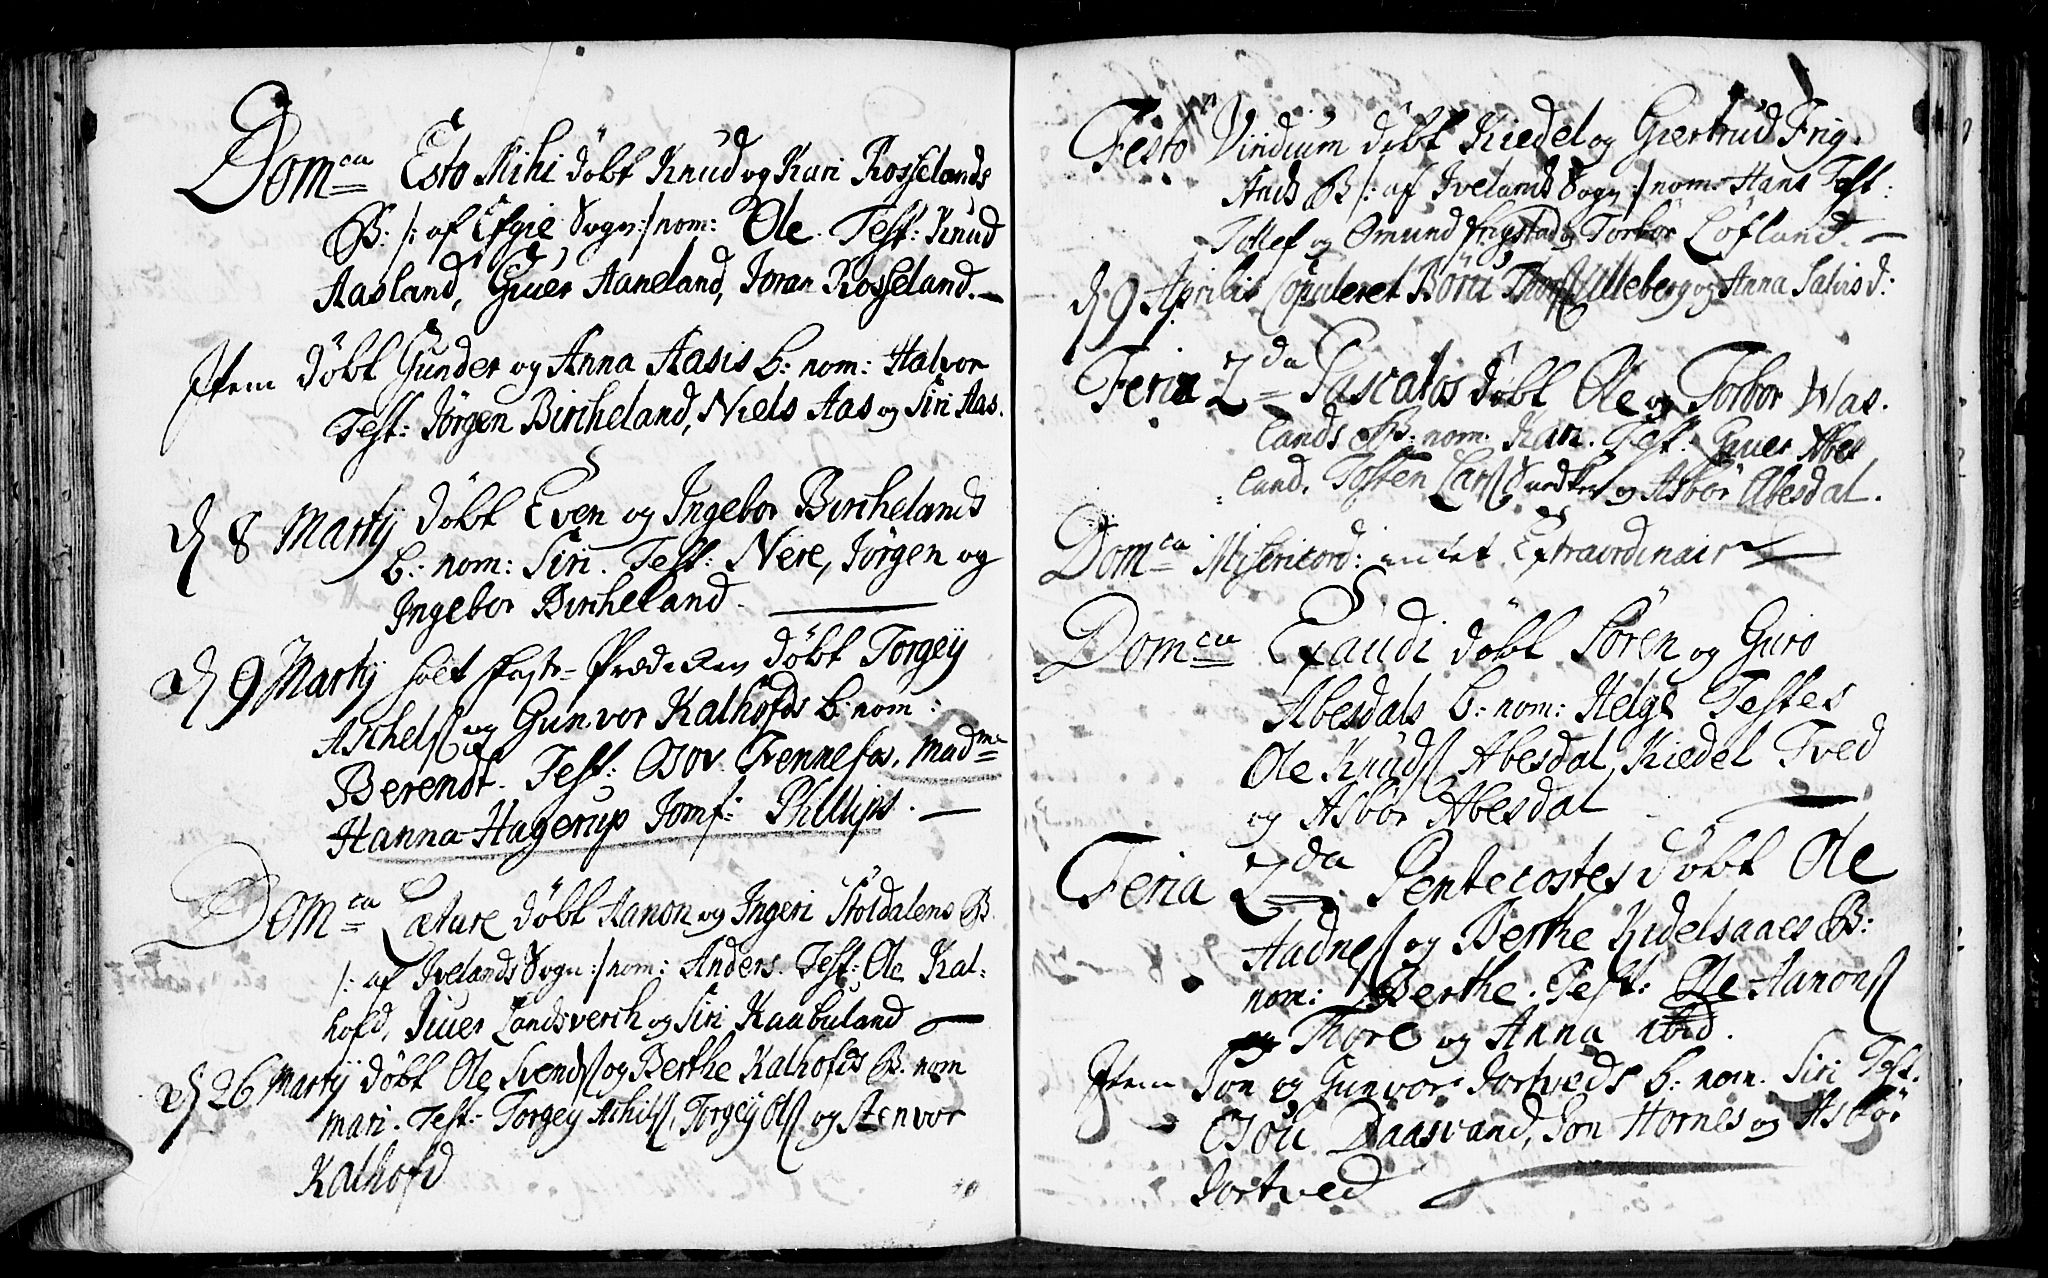 Domca Esto Mihi döbt Knud og Kari Rosselands
B: /: af Efgie Sogn :/ nom: Ole. Test: Knud
Aasland, Giuer Aaneland, Joran Rosseland.
Item döbt Gunder og Anna Aasis b: nom: Halvor
Test: Jörgen Bircheland, Niels Aas og Siri Aas.
d 8 Martij döbt Even og Ingebor Birchelands
b: nom: Siri. Test: Nere, Jörgen og
Ingebor Bircheland.
d 9 Martij holt Faste-Prædiken döbt Torgej
Aschelss og Gunvor Kalhofds b: nom:
Berendt. Test: Gov. Fennefos, Madme
Hanna Hagerup Jomf: Phillips.
Domca Lætare döbt Aanon og Ingeri Stoldalens B.
/: af Ivelands Sogn :/ nom: Anders. Test: Ole Kal-
hofd, Iuer Landsverch og Siri Kaabuland
d 26 Martij döbt Ole Svendss og Berthe Kalhofds B. nom
Mari. Test: Torgej Achilss, Torgej Olss og Stenvor
Kalhofd
Festo Viridium döbt Kiedel og Giertrud Frig-
stads B /: af Ivelands Sogn :/ nom: Hans Test:
Tollef og Omund Frigstad og Torbor Lofland.
d 9 Aprilis Copuleret Böru Thorss Ulleberg og Anna Salvisd:
Feria 2da Pascatos döbt Ole og Torbor Was-
lands B: nom. Kari. Test: Giuer Abes
land, Tosten Larss Snedker og Asbor Abesdal.
Domca Misericord: intet Extraordinair
Domca Exaudi döbt Sören og Guro
Abesdals b: nom: Helge Testes
Ole Knudss Abesdal, Kiedel Tved
og Asbor Abesdal
Feria 2da Pentecostes döbt Ole
Aadness og Berthe Kidelsaaes B:
nom: Berthe. Test: Ole Aanonss
Thore og Anna ibid.
Item Jon og Gunvor Jortveds b: nom. Siri Test.
Göu Daasvand, Jon Hornes og Asbör
Jortved